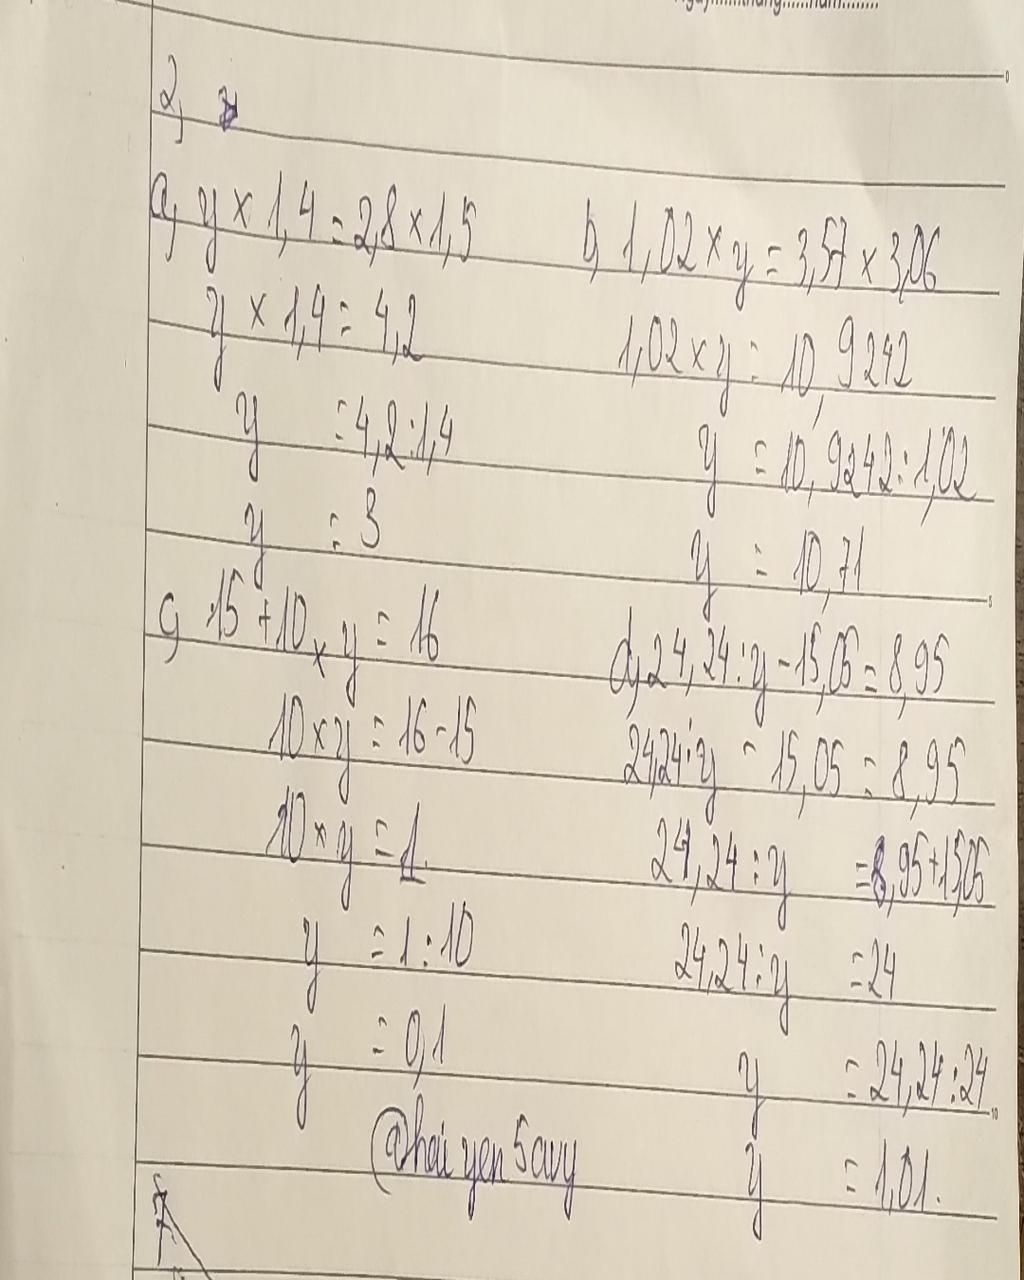 2,
a, y × 1,4 = 2,8 × 1,5
y × 1,4 = 4,2
y = 4,2 : 1,4
y = 3
b, 1,02 × y = 3,57 × 3,06
1,02 × y = 10,9242
y = 10,9242 : 1,02
y = 10,71
c, 15 + 10 × y = 16
10 × y = 16 - 15
10 × y = 1
y = 1 : 10
y = 0,1
d, 24,24 : y - 15,05 = 8,95
24,24 : y - 15,05 = 8,95
24,24 : y = 8,95 + 15,05
24,24 : y = 24
y = 24,24 : 24
y = 1,01.
@hai yen 5 avy